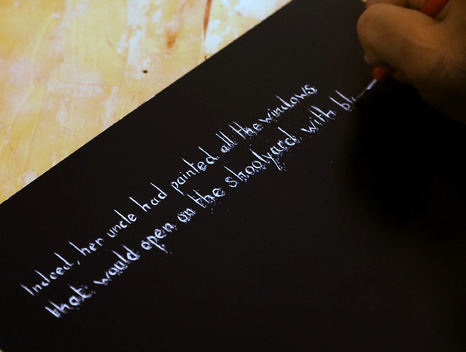 Indeed, her uncle had painted all the windows
that would open on the shoolyard with bl